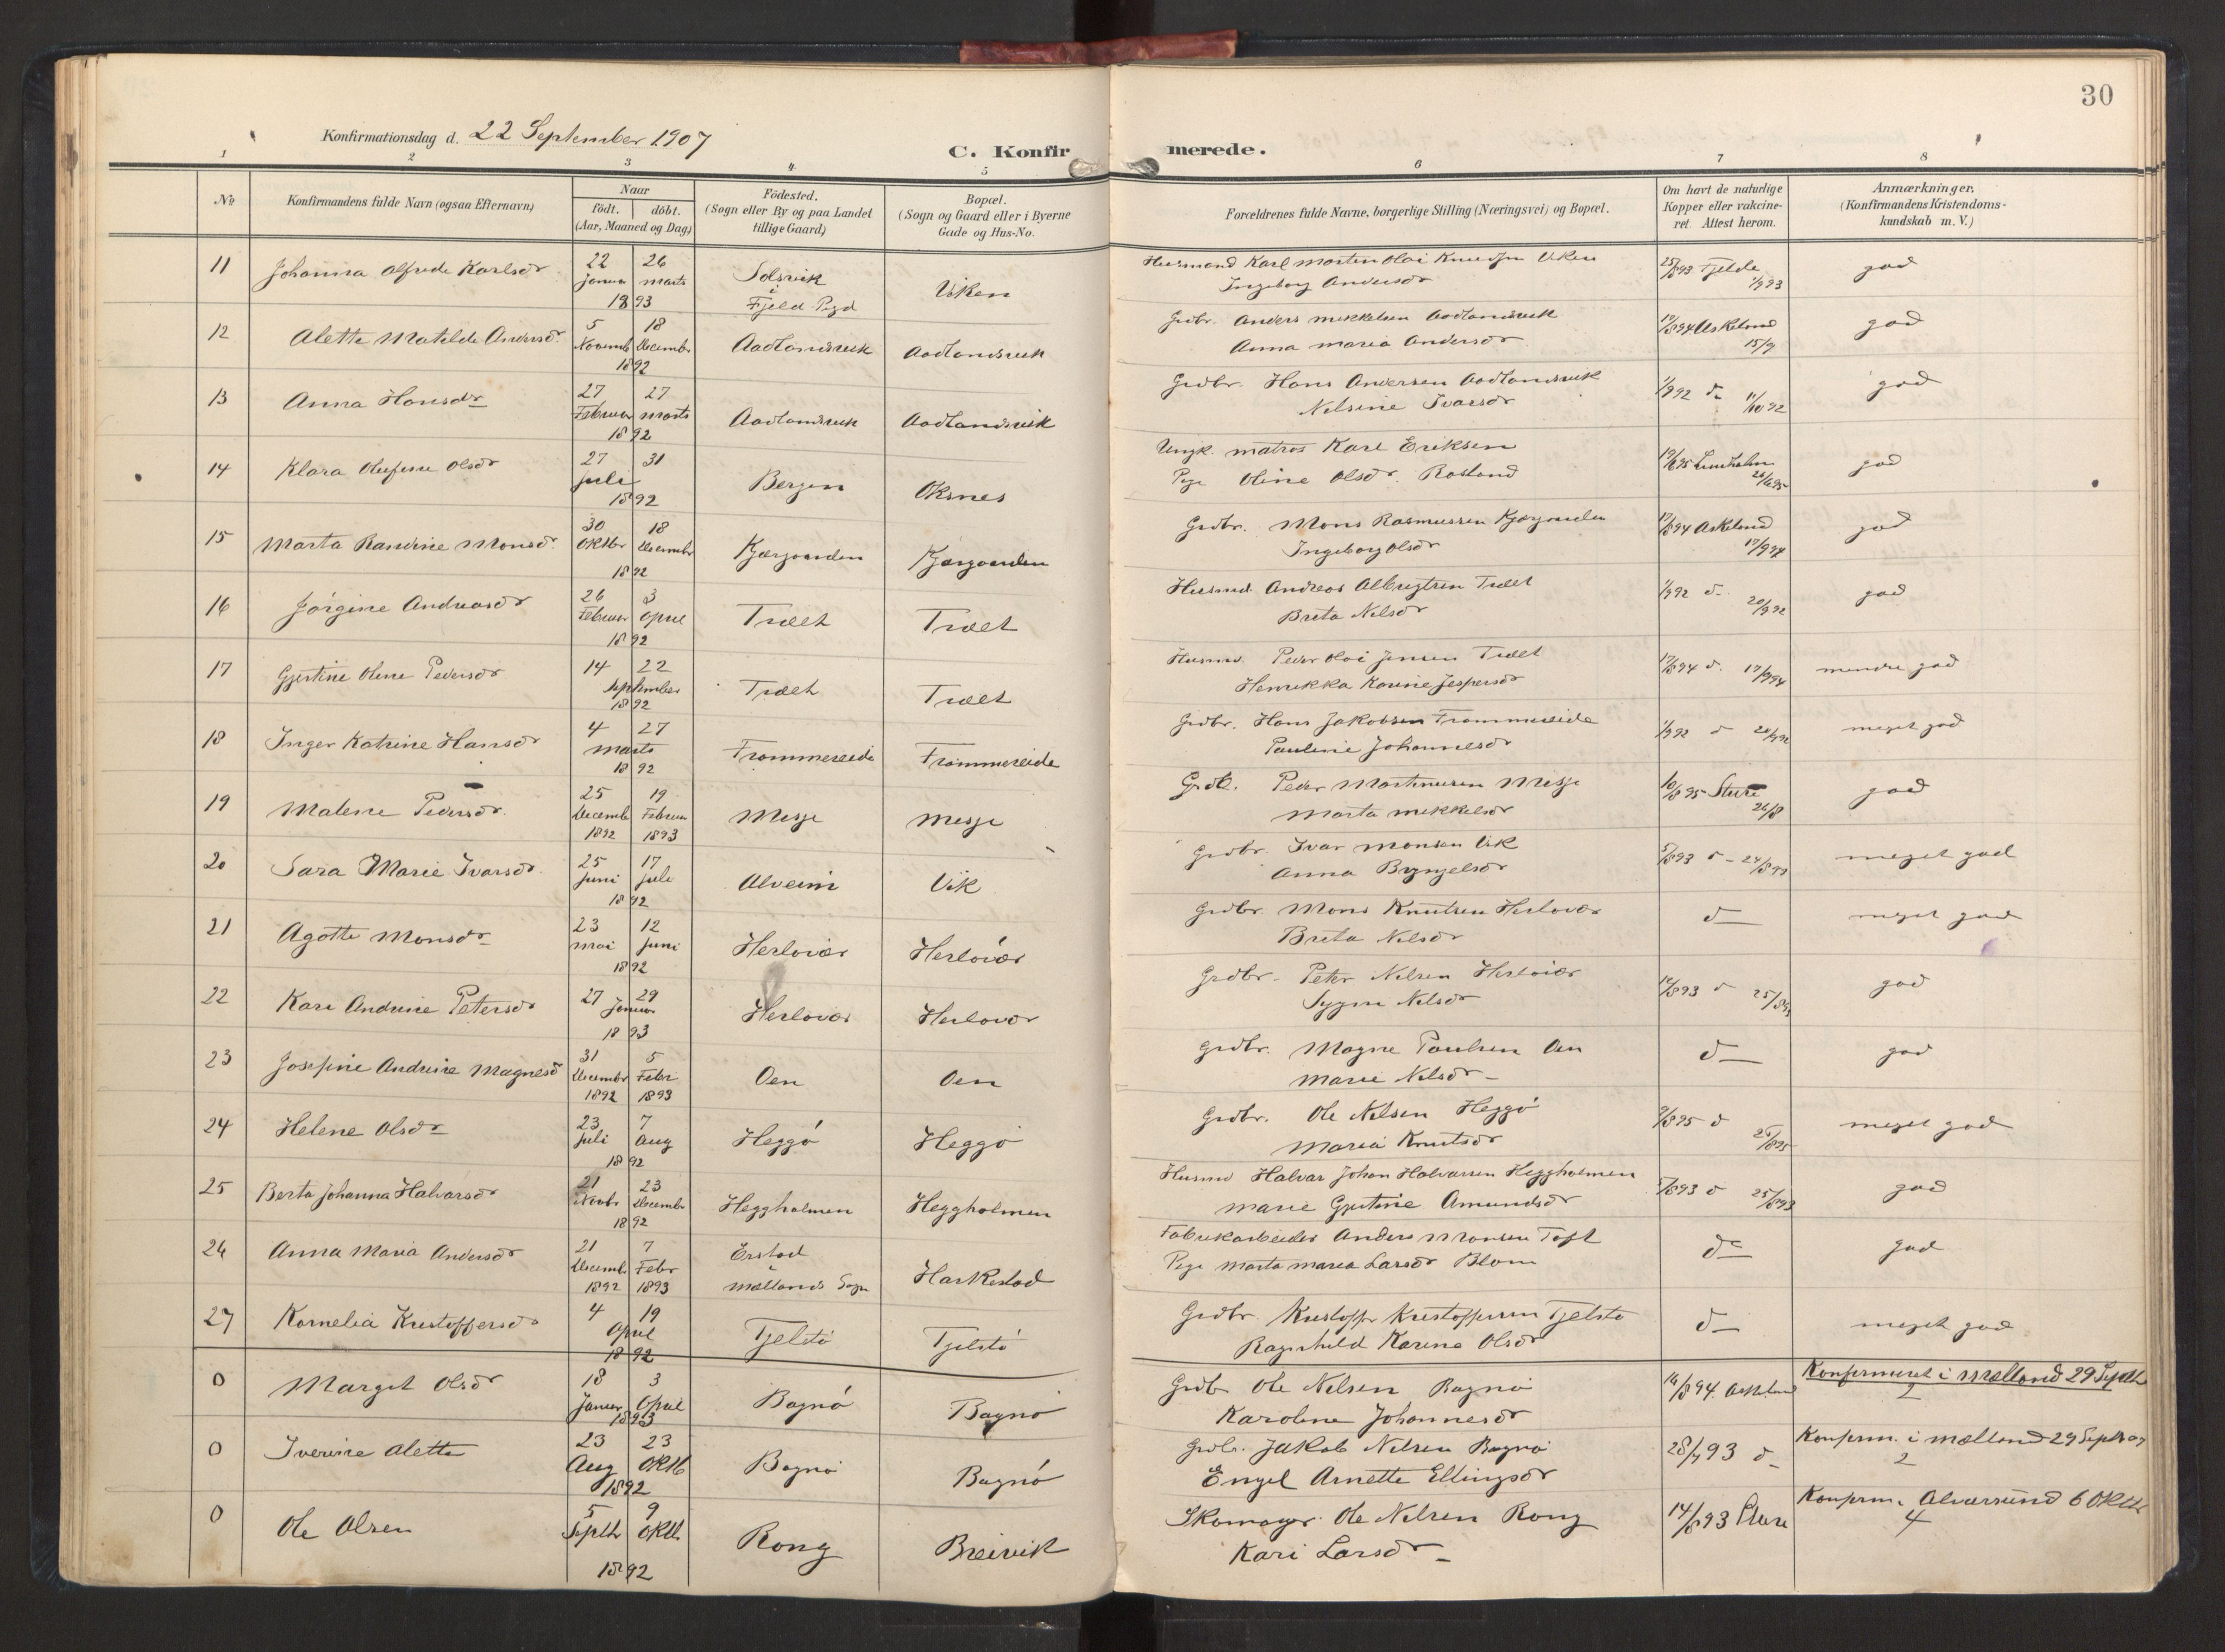 30
Konfirmationsdag d. 22 September 1907
C. Konfirmerede.
1 2 3 4 5 6 7 8
No
Konfirmandens fulde Navn (ogsaa Efternavn)
Naar
födt. döbt.
(Aar, Maaned og Dag)
Födested.
(Sogn eller By og paa Landet
tillige Gaard)
Bopæl.
(Sogn og Gaard eller i Byerne
Gade og Hus-No.
Forældrenes fulde Navne, borgerlige Stilling (Næringsvei) og Bopæl.
Om havt de naturlige
Kopper eller vakcine-
ret. Attest herom.
Anmærkninger.
(Konfirmandens Kristendoms-
kundskab m. V.)
11 Johanna Alfrede Karlsdr 22 Januar 26 Marts 1893 Solsvik i Fjeld Pgd Viken
Husmand Karl Morten Olai Knudsen Viken
Ingeborg Andersdr
25/8 93 Fjelde 1/9 93 god
12 Alette Matilde Andersdr. 5 Novemb 18 Decembr 1892 Aadlandsvik Aadlandsvik
Grdbr. Anders Mikkelsen Aadlandsvik
Anna Maria Andersdr
Askeland 15/9 god
13 Anna Hansdr 27 Februar 27 Marts 1892 Aadlandsvik Aadlandsvik
Grdbr. Hans Andersen Aadlandsvik
Nilsine Ivarsdr
1/9 92 do 11/10 92 god
14 Klara Olufine Olsdr 27 31 Juli 1892 Bergen Oksnes
Ungk. matros Karl Eriksen
Pige Oline Olsdr. Rosland
god
15 Marta Randine Monsdr. 30 Oktbr 18 Decembr 1892 Kjærgaarden Kjærgaarden
Grdbr. Mons Rasmussen Kjærgaarden
Ingeborg Olsdr
17/8 94 Askeland 17/9 94 god
16 Jørgine Andreasdr 26 Februar 3 April 1892 Træet Træet
Husmd. Andreas Albrigtsen Træet
Brita Nilsdr
1/9 92 do 20/9 92 god
17 Gjertine Oline Pedersdr 14 22 September 1892 Træet Træet
Husmd. Peder Olai Jensen Træet
Henrikka Karine Jespersdr
17/8 94 do 17/9 94 mindre god
18 Inger Katrine Hansdr 4 27 Marts 1892 Trommereide Trommereide
Grdbr. Hans Jakobsen Trommereide
Pauline Johannesdr
1/9 92 do 20/9 92 meget god
19 Malene Pedersdr. 25 Decemb 1892 19 Februar 1893 Misje Misje
Grdb. Peder Martinusen Misje
Marta Mikkelsdr
10/8 95 Sture 26/8 god
20 Sara Marie Ivarsdr. 25 Juni 17 Juli 1892 Alveim Vik
Grdbr. Ivar Monsen Vik
Anna Brynjelsdr
5/8 93 do 24/8 93 meget god
21 Agotte Monsdr 23 Mai 12 Juni 1892 Herlovær Herlovær
Grdbr. Mons Knutsen Herlovær
Brita Nilsdr
do meget god
22 Kari Andrine Petersdr 27 29 Januar 1893 Herlovær Herlovær
Grdbr. Peter Nilsen Herlovær
Nilsdr
14/8 93 do 25/8 93 god
23 Josefine Andrine Magnesd 31 Decembr 1892 5 Febr 1893 Oen Oen
Grdbr. Magne Paulsen Oen
Marie Nilsdr
do god
24 Helene Olsdr 23 Juli 7 Aug 1892 Heggö Heggö
Grdbr. Ole Nilsen Heggö
Maria Knutsdr
9/8 95 do 25/8 95 meget god
25 Berta Johanna Halvarsdr 21 Novbr 23 Decembr 1892 Heggholmen Heggholmen
Husmd Halvar Johan Halvarsen Heggholmen
Marie Gjertine Amundsdr
5/8 93 do 25/8 93 god
26 Anna Maria Andersdr 21 Decemb 1892 7 Febr 1893 Erstad i Mællands Sogn Harkestad
Fabrikarbeider Anders Monsen Toft
Pige Marta Maria Larsdr Blom
do god
27 Kornelia Kristoffersdr 4 19 April 1892 Tjelstö Tjelstö
Grdbr. Kristoffer Kristoffersen Tjelstö
Ragnhild Karine Olsdr
do meget god
0 Marget Olsdr 18 Januar 3 April 1893 Bagnö Bagnö
Grdbr Ole Nilsen Bagnö
Karoline Johannesdr
14/8 94. Askeland Konfirmeret i Mælland 29 Septb
2
0 Iverine Alette 23 Aug 23 Oktb 1892 Bagnö Bagnö
Grdbr. Jakob Nilsen Bagnö
Engel Arnette Ellingsdr
28/7 93 do Konfirm. i Mælland 29 Septb 07
2
0 Ole Olsen 5 Septb 9 Oktb 1892 Rong Breivik
Skomager Ole Nilsen Rong
Kari Larsdr
14/8 93 Sture Konfirm. i Alversund 6 Oktb
4